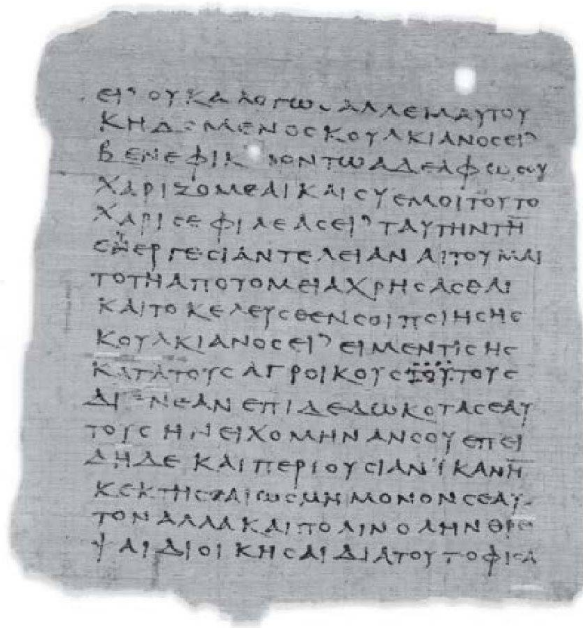 ΕΙ⸃ ΟΥΚ ΑΛΟΓΩϹ ΑΛΛ ΕΜΑΥΤΟΥ
ΚΗΔΟΜΕΝΟϹ ΚΟΥΛΚΙΑΝΟϹ ΕΙ⸃
ΒΕΝΕΦΙΚΙΟΝ ΤΩ ΑΔΕΛΦΩ ϹΟΥ
ΧΑΡΙΖΟΜΕΑΙ ΚΑΙ ϹΥ ΕΜΟΙ ΤΟΥΤΟ
ΧΑΡΙϹΕ ΦΙΛΕΑϹ ΕΙ⸃ ΤΑΥΤΗΝ ΤΗ̅
ΕΥΕΡΓΕϹΙΑΝ ΤΕΛΕΙΑΝ ΑΙΤΟΥΜΑΙ
ΤΟ ΤΗ ΑΠΟΤΟΜΕΙΑ ΧΡΗϹΑϹΘΑΙ
ΚΑΙ ΤΟ ΚΕΛΕΥϹΘΕΝ ϹΟΙ ΠΟΙΗϹΗϹ
ΚΟΥΛΚΙΑΝΟϹ ΕΙ⸃ ΕΙ ΜΕΝ ΤΙϹ ΗϹ
ΚΑΤΑ ΤΟΥϹ ΑΓΡΟΙΚΟΥϹ ΤΟΥΤΟΥϹ
ΔΙ ΕΝΕΑΝ ΕΠΙΔΕΔΩΚΟΤΑϹ ΕΑΥ
ΤΟΥϹ ΗΝΕΙΧΟΜΗΝ ΑΝ ϹΟΥ ΕΠΕΙ
ΔΗ ΔΕ ΚΑΙ ΠΕΡΙΟΥϹΙΑΝ ΪΚΑΝΗ̅
ΚΕΚΤΗϹΑΙ ΩϹ ΜΗ ΜΟΝΟΝ ϹΕΑΥ
ΤΟΝ ΑΛΛΑ ΚΑΙ ΠΟΛΙΝ ΟΛΗΝ ΘΡΕ
ΨΑΙ ΔΙΟΙΚΗϹΑΙ ΔΙΑ ΤΟΥΤΟ ΦΙϹΑ